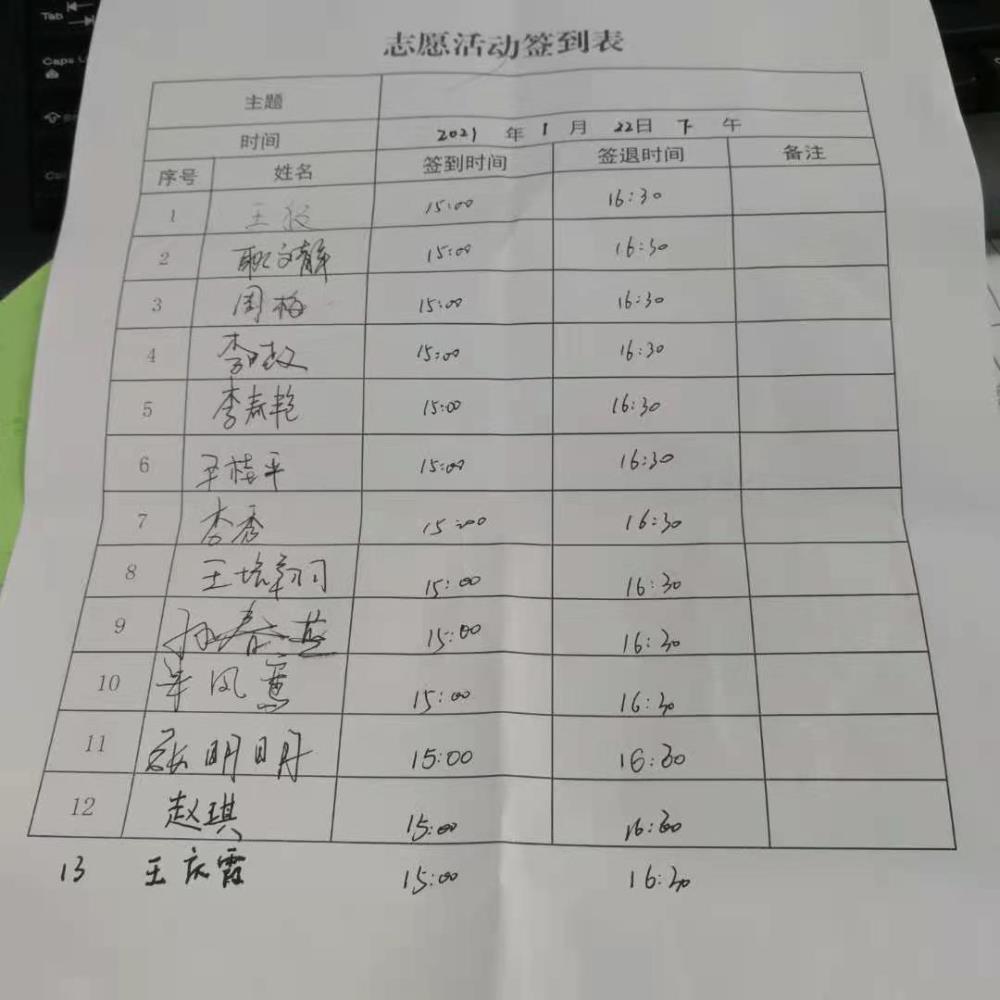 志愿活动签到表
主题
时间 2021 年 1 月 22日 下 午
序号 姓名 签到时间 签退时间 备注
1 王 15:00 16:30
2 耿文静 15:00 16:30
3 周梅 15:00 16:30
4 李 15:00 16:30
5 李春艳 15:00 16:30
6 桂平 15:00 16:30
7 李秀 15:00 16:30
8 王培 15:00 16:30
9 孙春燕 15:00 16:30
10 牟凤 15:00 16:30
11 张明月 15:00 16:30
12 赵琪 15:00 16:30
13 王庆霞 15:00 16:30
Tab
Caps